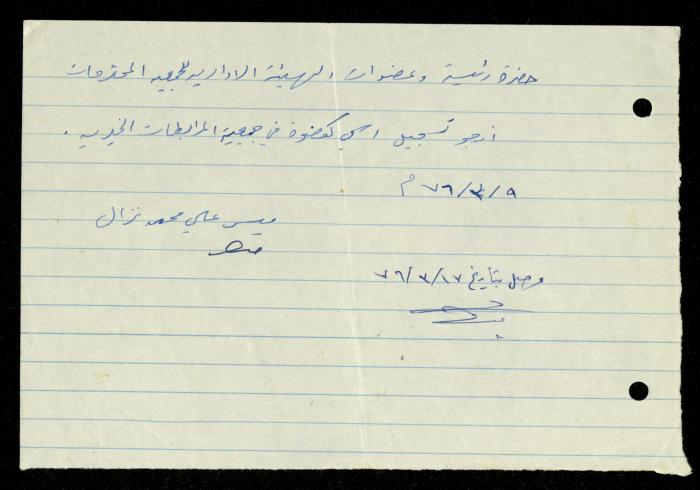 حضرة رئيسة وعضوات الهيئة الادارية للجمعيه المحترمات
ارجو تسجيل اسمي كعضوة في جمعية المرابطات الخيريه .
٧٦/٣/٩ م
ميسر علي محمد نزال
وصل بتاريخ ٧٦/٣/١٧